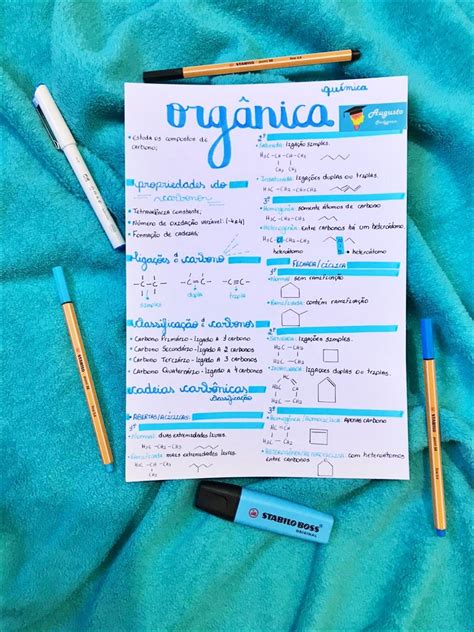 química
orgânica
Augusto
• Estuda os compostos de
carbono;
propriedades do
carbono
• Tetravalência constante;
• Número de oxidação variável (-4 a +4)
• Formação de cadeias;
ligações do carbono
-C-C-
-C=C-
-C≡C-
simples
dupla
tripla
classificação dos carbonos
• Carbono Primário - ligado A 1 carbono
• Carbono Secundário - ligado A 2 carbonos
• Carbono Terciário - ligado A 3 carbonos
• Carbono Quaternário - ligado A 4 carbonos
cadeias carbônicas
Classificação
• ABERTAS/ACÍCLICAS:
1º
• Normal: duas extremidades livres.
H₃C - CH₂ - CH₃
• Ramificada: mais extremidades livres.
H₃C - CH - CH₃
CH₃
2º
• Saturada: ligação simples.
H₃C - CH - CH₃
CH₃
• Insaturada: ligações duplas ou triplas.
3º
• Homogênea: somente átomos de carbono
• Heterogênea: entre carbonos há um heteroátomo.
heteroátomo
heteroátomo
FECHADA/CÍCLICA:
1º
• Normal: sem ramificação
• Ramificada: contém ramificação
2º
• Saturada: ligação simples.
H₂C - CH₂
H₂C - CH₂
• Insaturada: ligações duplas ou triplas.
3º
• Homogênea/Homocíclica: Apenas carbono
• Heterogênea/Heterocíclica: com heteroátomos
entre carbonos
STABILO BOSS
ORIGINAL